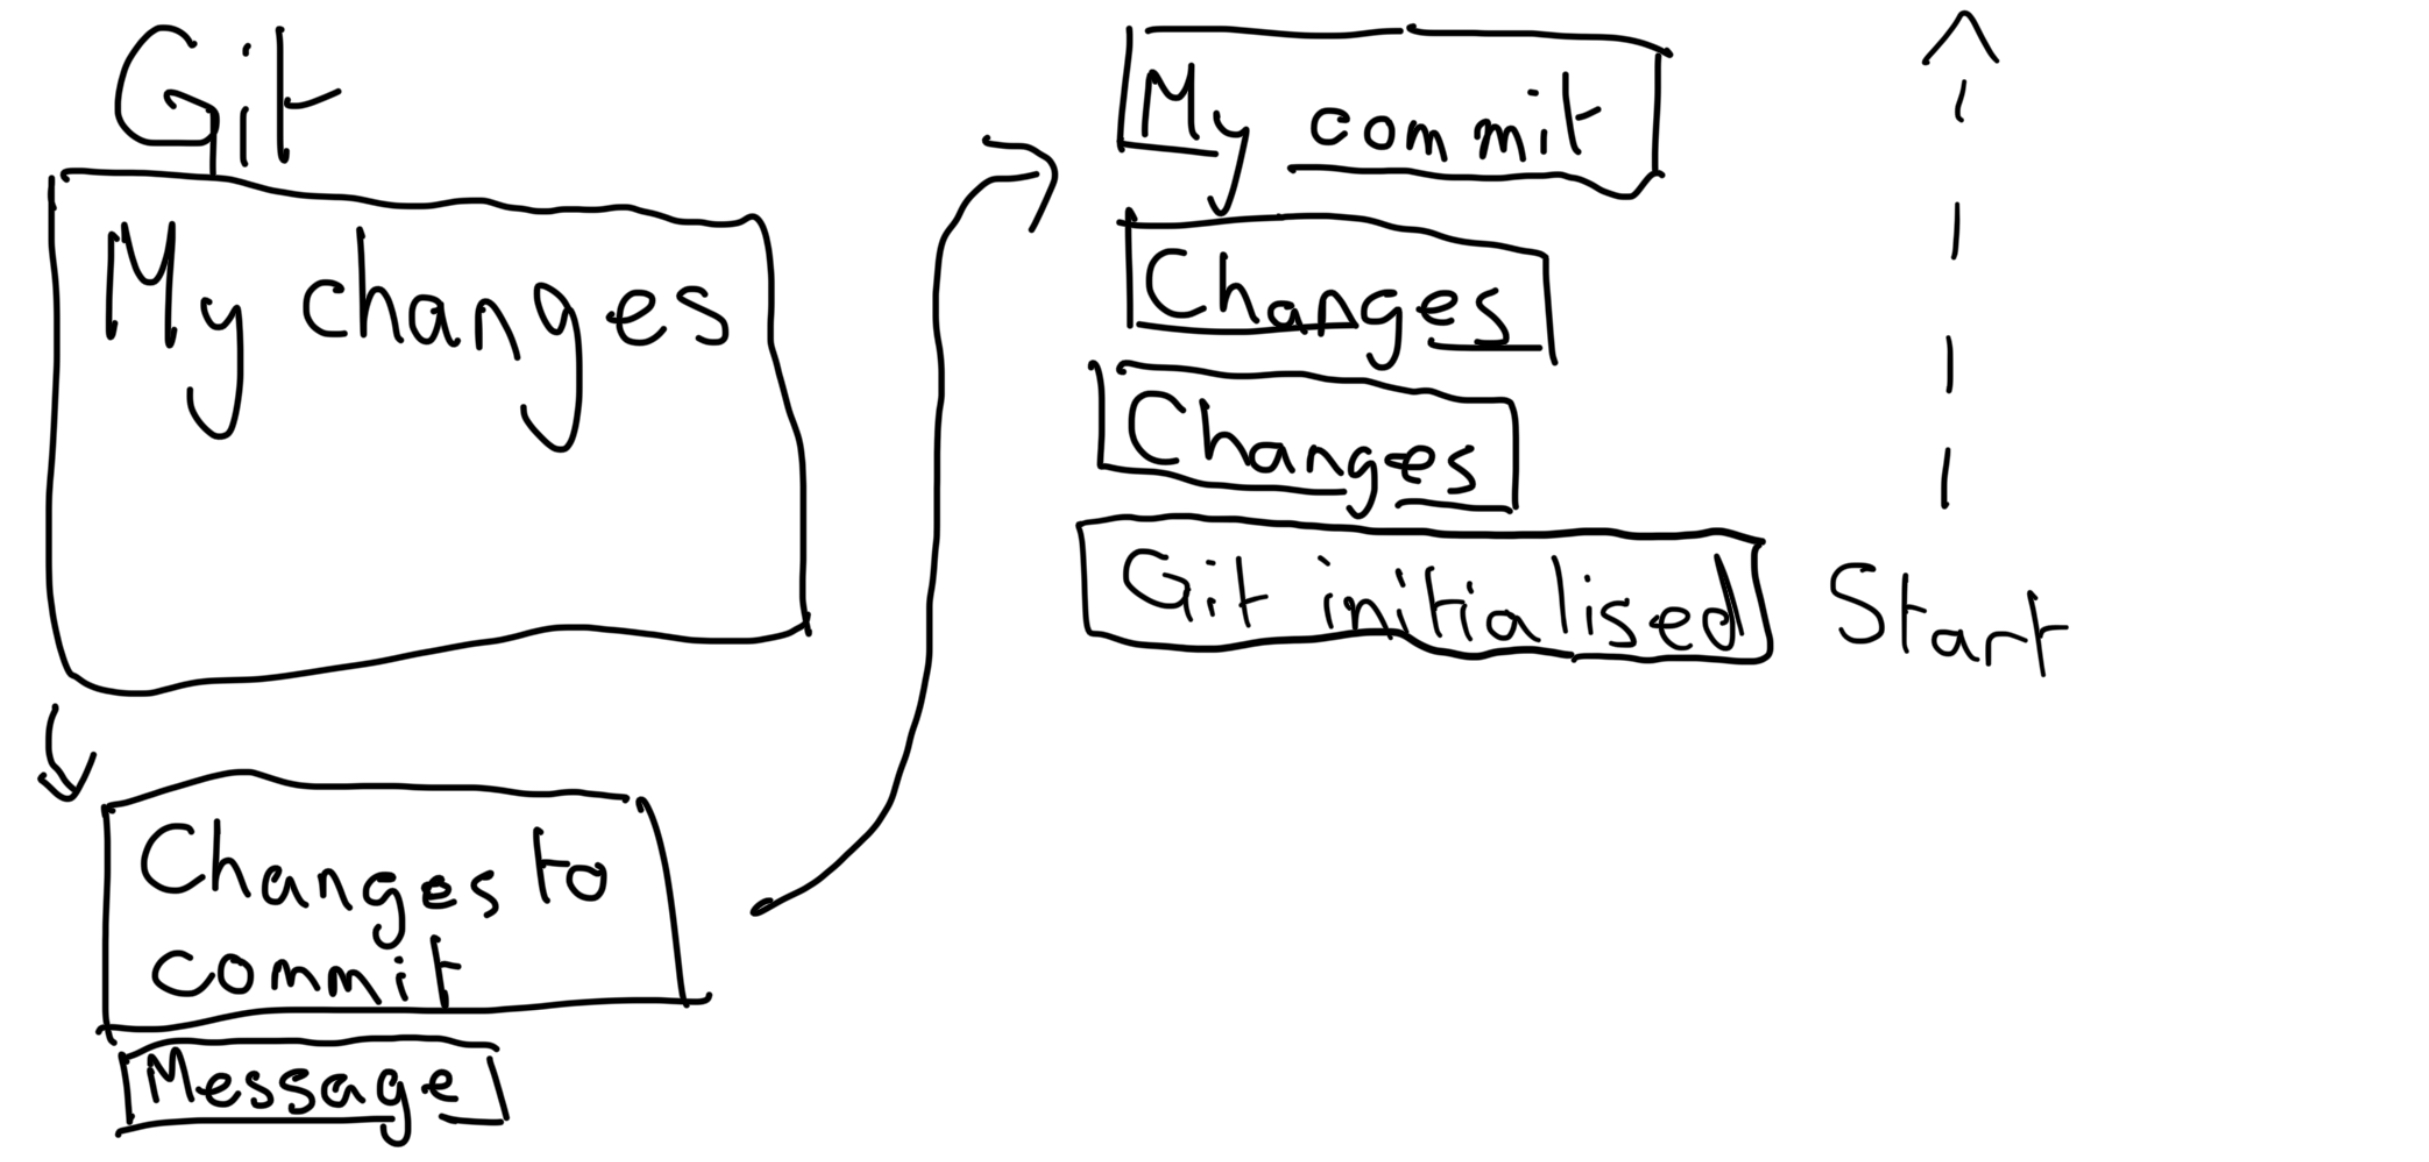 Git
My changes
Changes to
commit
Message
My commit
Changes
Changes
Git initialised
Start